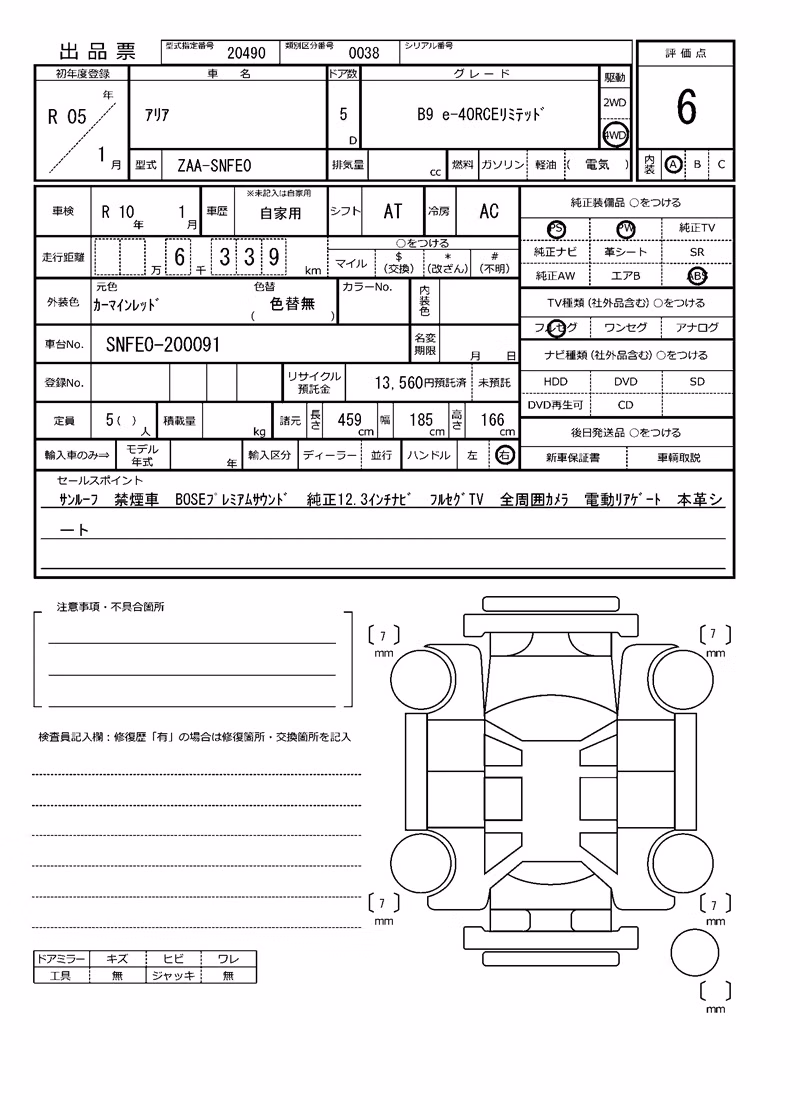 出品票 型式指定番号 20490 類別区分番号 0038 シリアル番号
評価点
6
内装 A B C
初年度登録 車名 ドア数 グレード 駆動
R 05 年 1 月 アリア 5 D B9 e-4ORCEリミテッド 2WD 4WD
型式 ZAA-SNFE0 排気量 cc 燃料 ガソリン 軽油 ( 電気 )
車検 R 10 年 1 月 車歴 ※未記入は自家用 自家用 シフト AT 冷房 AC
走行距離 万 6 千 3 3 9 km ○をつける
マイル $ (交換) * (改ざん) # (不明)
外装色 元色 カーマインレッド 色替 ( 色替無 ) カラーNo. 内装色
車台No. SNFE0-200091 名変期限 月 日
登録No. リサイクル預託金 13,560円預託済 未預託
定員 5( ) 人 積載量 kg 諸元 長さ 459 cm 幅 185 cm 高さ 166 cm
輸入車のみ⇒ モデル年式 年 輸入区分 ディーラー 並行 ハンドル 左 右
純正装備品 ○をつける
PS PW 純正TV
純正ナビ 革シート SR
純正AW エアB ABS
TV種類 (社外品含む) ○をつける
フルセグ ワンセグ アナログ
ナビ種類 (社外品含む) ○をつける
HDD DVD SD
DVD再生可 CD
後日発送品 ○をつける
新車保証書 車輌取説
セールスポイント
サンルーフ 禁煙車 BOSEプレミアムサウンド 純正12.3インチナビ フルセグTV 全周囲カメラ 電動リアゲート 本革シ
ート
注意事項・不具合箇所
検査員記入欄:修復歴「有」の場合は修復箇所・交換箇所を記入
ドアミラー キズ ヒビ ワレ
工具 無 ジャッキ 無
( 7 ) mm
( 7 ) mm
( 7 ) mm
( 7 ) mm
( ) mm